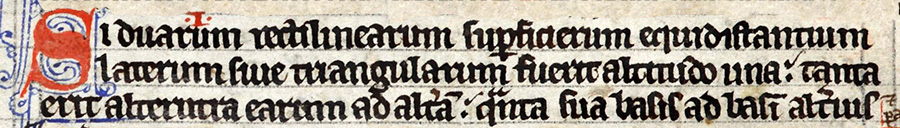 Si duarum rectilinearum sup̱ficierum equidistantium
laterum siue triangularum fuerit altitudo una: tanta
erit alterutra earum ad alt̃am: q̃nta sua basis ad basī alt̃ius